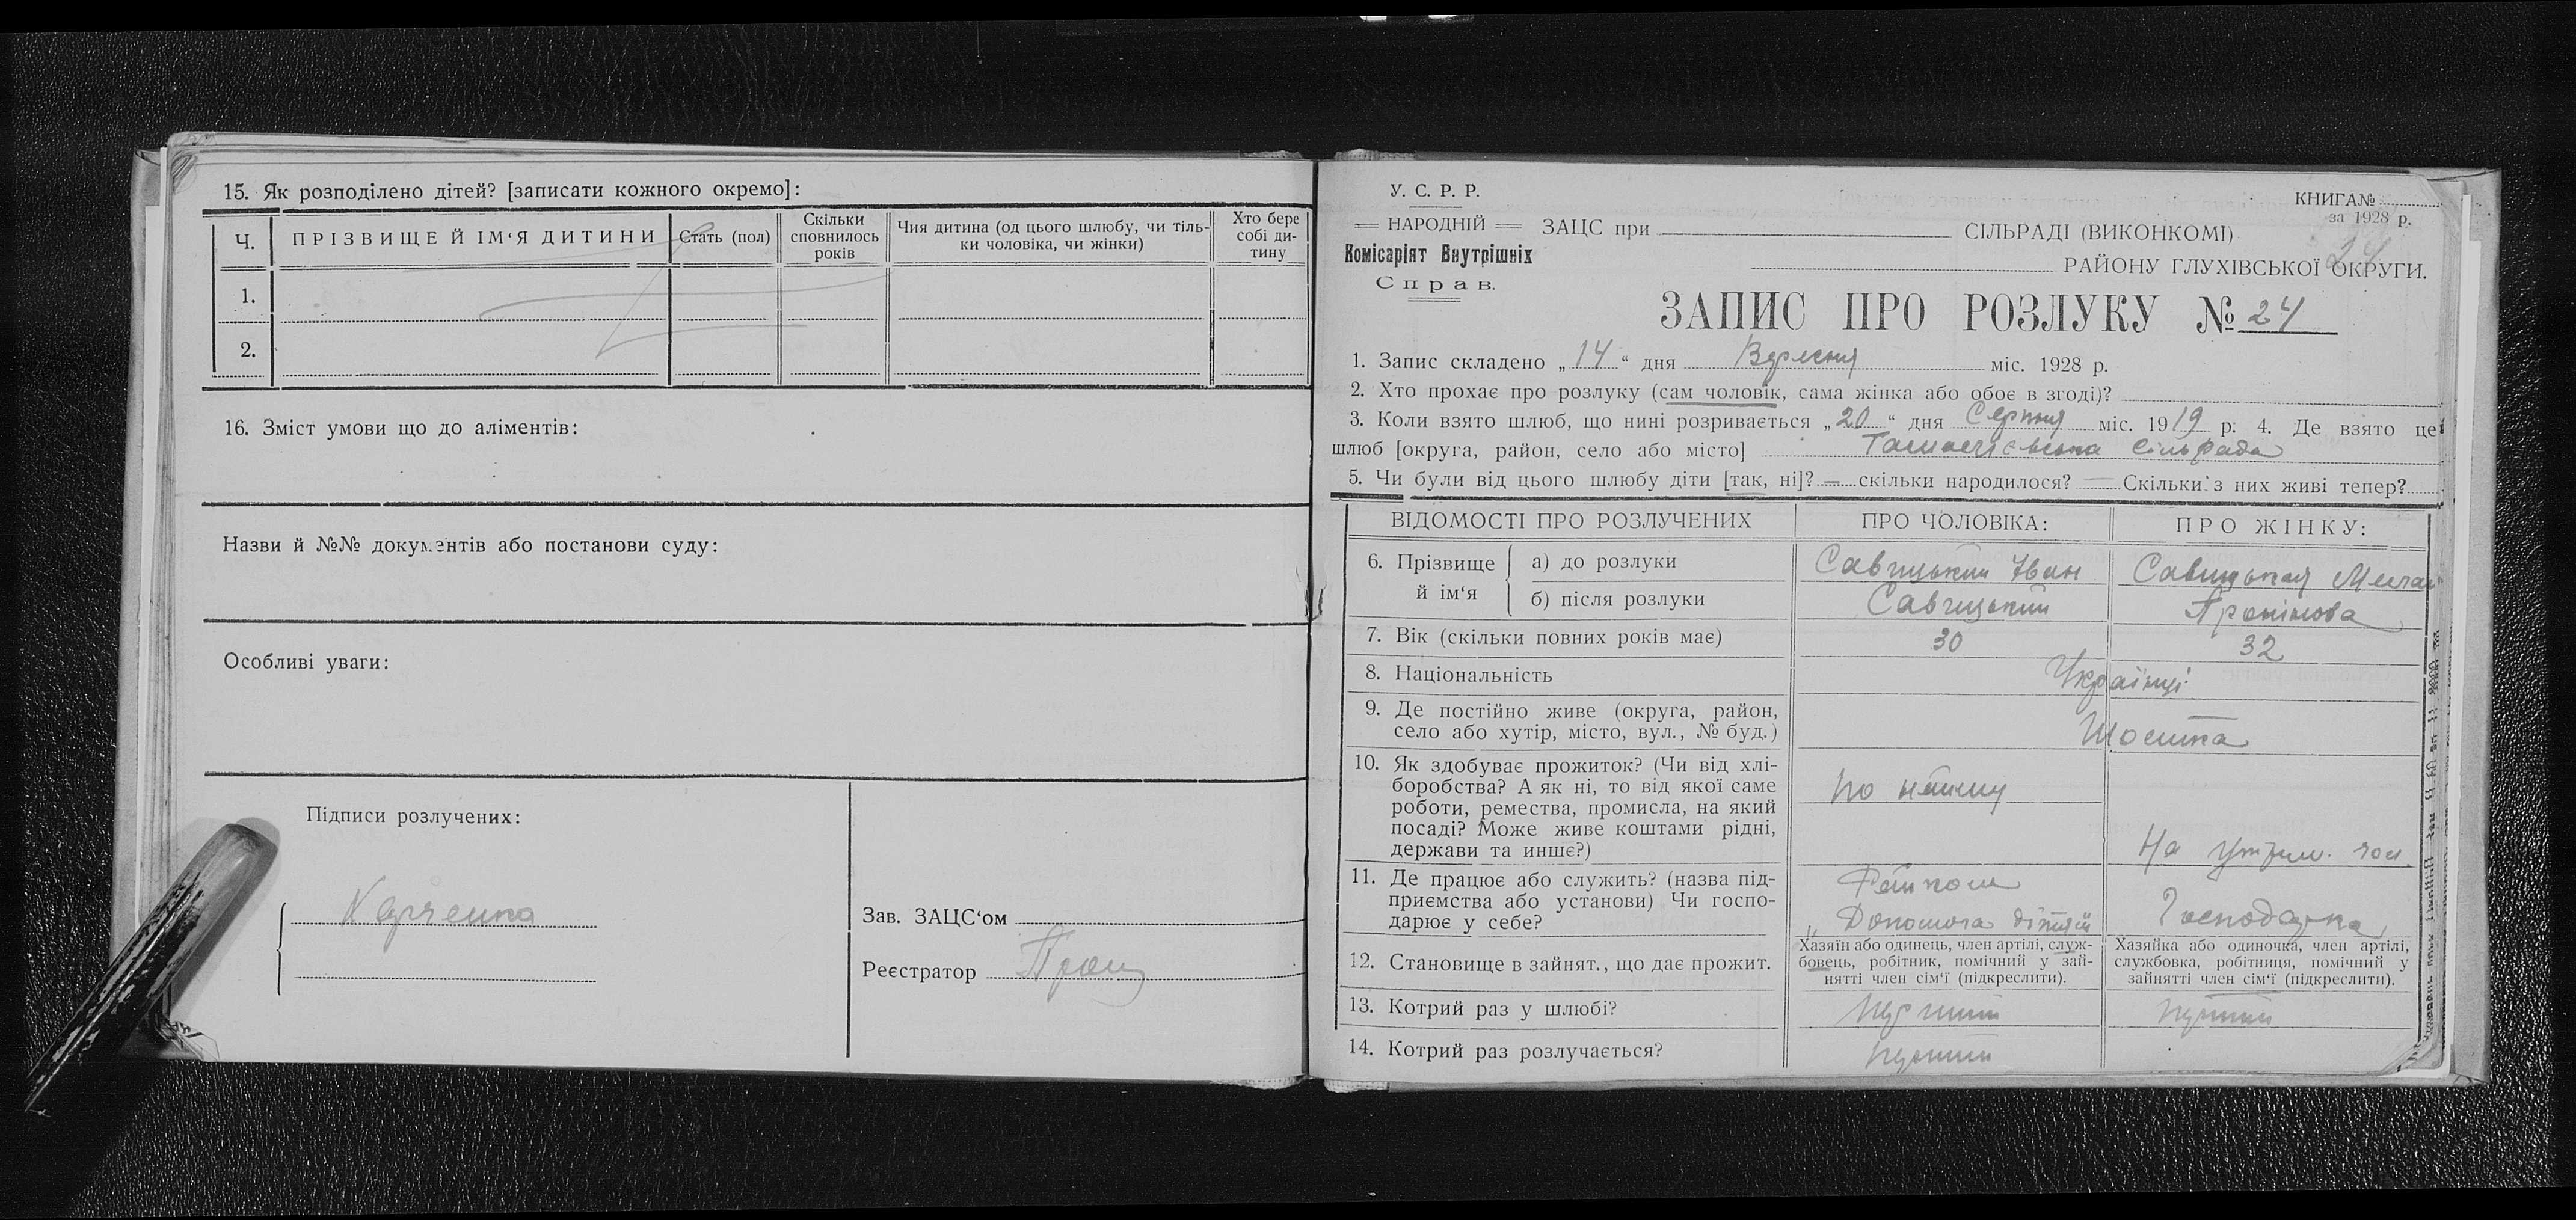 15. Як розподілено дітей? [записати кожного окремо]:
Ч. ПРІЗВИЩЕ Й ІМ‘Я ДИТИНИ Стать (пол) Скільки сповнилось років Чия дитина (од цього шлюбу, чи тіль-ки чоловіка, чи жінки) Хто бере собі ди-тину
1.
2.
16. Зміст умови що до аліментів:
Назви й №№ документів або постанови суду:
Особливі уваги:
Підписи розлучених:
Харченко
Зав. ЗАЦС‘ом
Реєстратор
У. С. Р. Р.
НАРОДНІЙ
Комісаріят Внутрішніх
Справ.
КНИГА №
за 1928 р.
ЗАЦС при СІЛЬРАДІ (ВИКОНКОМІ)
24
РАЙОНУ ГЛУХІВСЬКОЇ ОКРУГИ.
ЗАПИС ПРО РОЗЛУКУ № 24
1. Запис складено „14“ дня Вересня міс. 1928 р.
2. Хто прохає про розлуку (сам чоловік, сама жінка або обоє в згоді)?
3. Коли взято шлюб, що нині розривається „20“ дня Серпня міс. 1919 р. 4. Де взято це
шлюб [округа, район, село або місто] сільрада
5. Чи були від цього шлюбу діти [так, ні]? — скільки народилося? — Скільки з них живі тепер?
ВІДОМОСТІ ПРО РОЗЛУЧЕНИХ ПРО ЧОЛОВІКА: ПРО ЖІНКУ:
6. Прізвище й ім‘я а) до розлуки Савицький Іван Савицькая
б) після розлуки Савицький
7. Вік (скільки повних років має) 30 32
8. Національність Українці
9. Де постійно живе (округа, район,
село або хутір, місто, вул., № буд.) Шостка
10. Як здобуває прожиток? (Чи від хлі-
боробства? А як ні, то від якої саме
роботи, ремества, промисла, на який По найму
посаді? Може живе коштами рідні,
держави та инше?) На утрим. чол.
11. Де працює або служить? (назва під-
приємства або установи) Чи госпо-
дарює у себе? „Допомога дітям Господарка
12. Становище в зайнят., що дає прожит.
Хазяїн або одинець, член артілі, служ-
бовець, робітник, помічний у зай-
нятті член сім‘ї (підкреслити).
Хазяйка або одиночка, член артілі,
службовка, робітниця, помічний у
зайнятті член сім‘ї (підкреслити).
13. Котрий раз у шлюбі? Перший перший
14. Котрий раз розлучається? перший